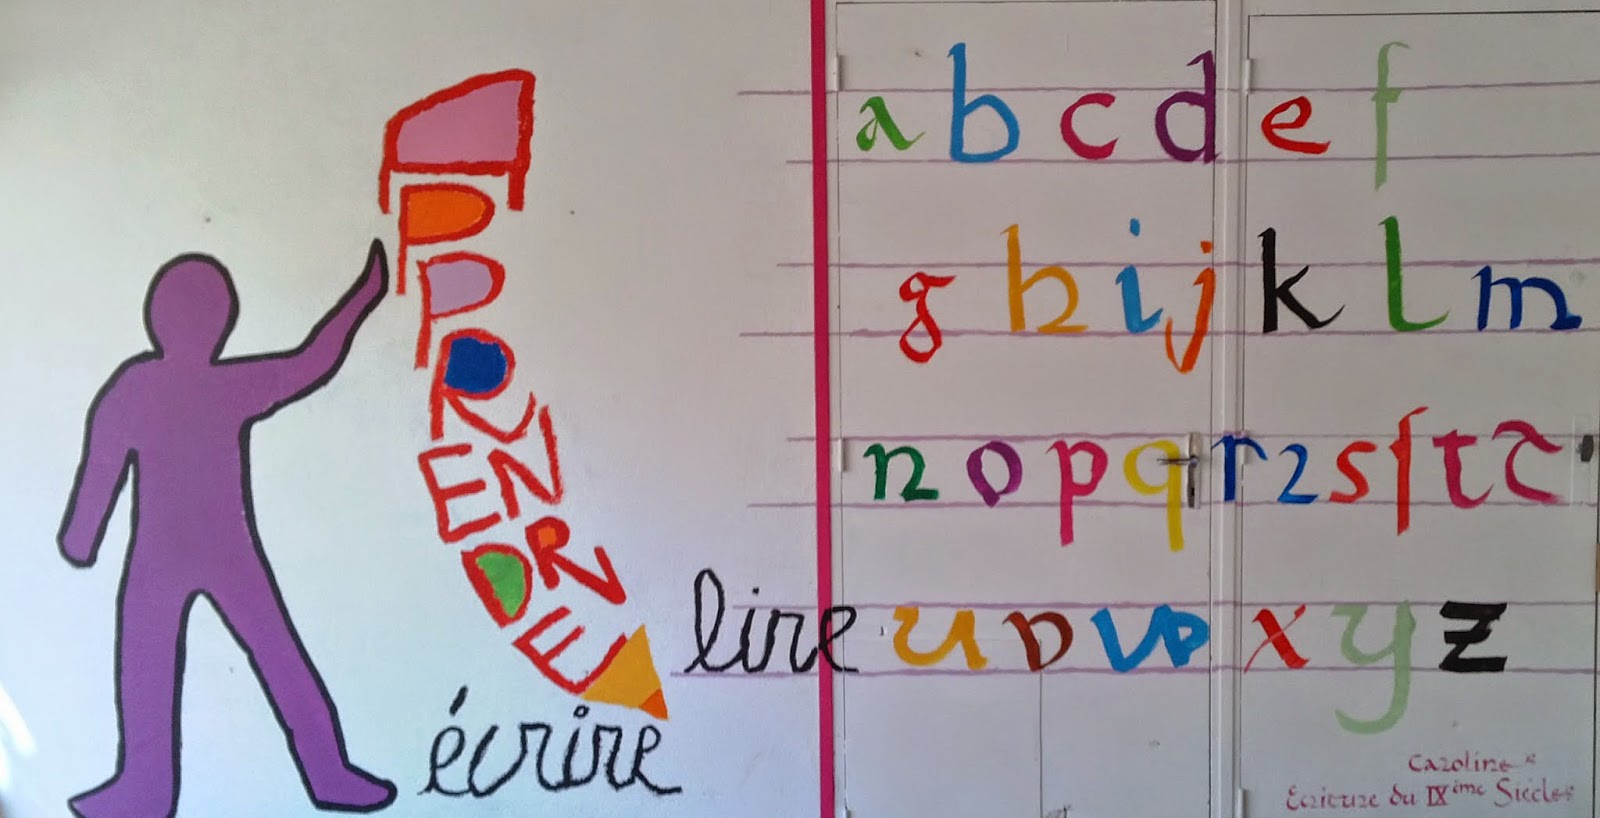 APPRENDRE
lire
écrire
a b c d e f
g h i j k l m
n o p q r ꝛ s ſ t ꞇ
u v w x y z
Caroline
Ecriture du IXème Siècles